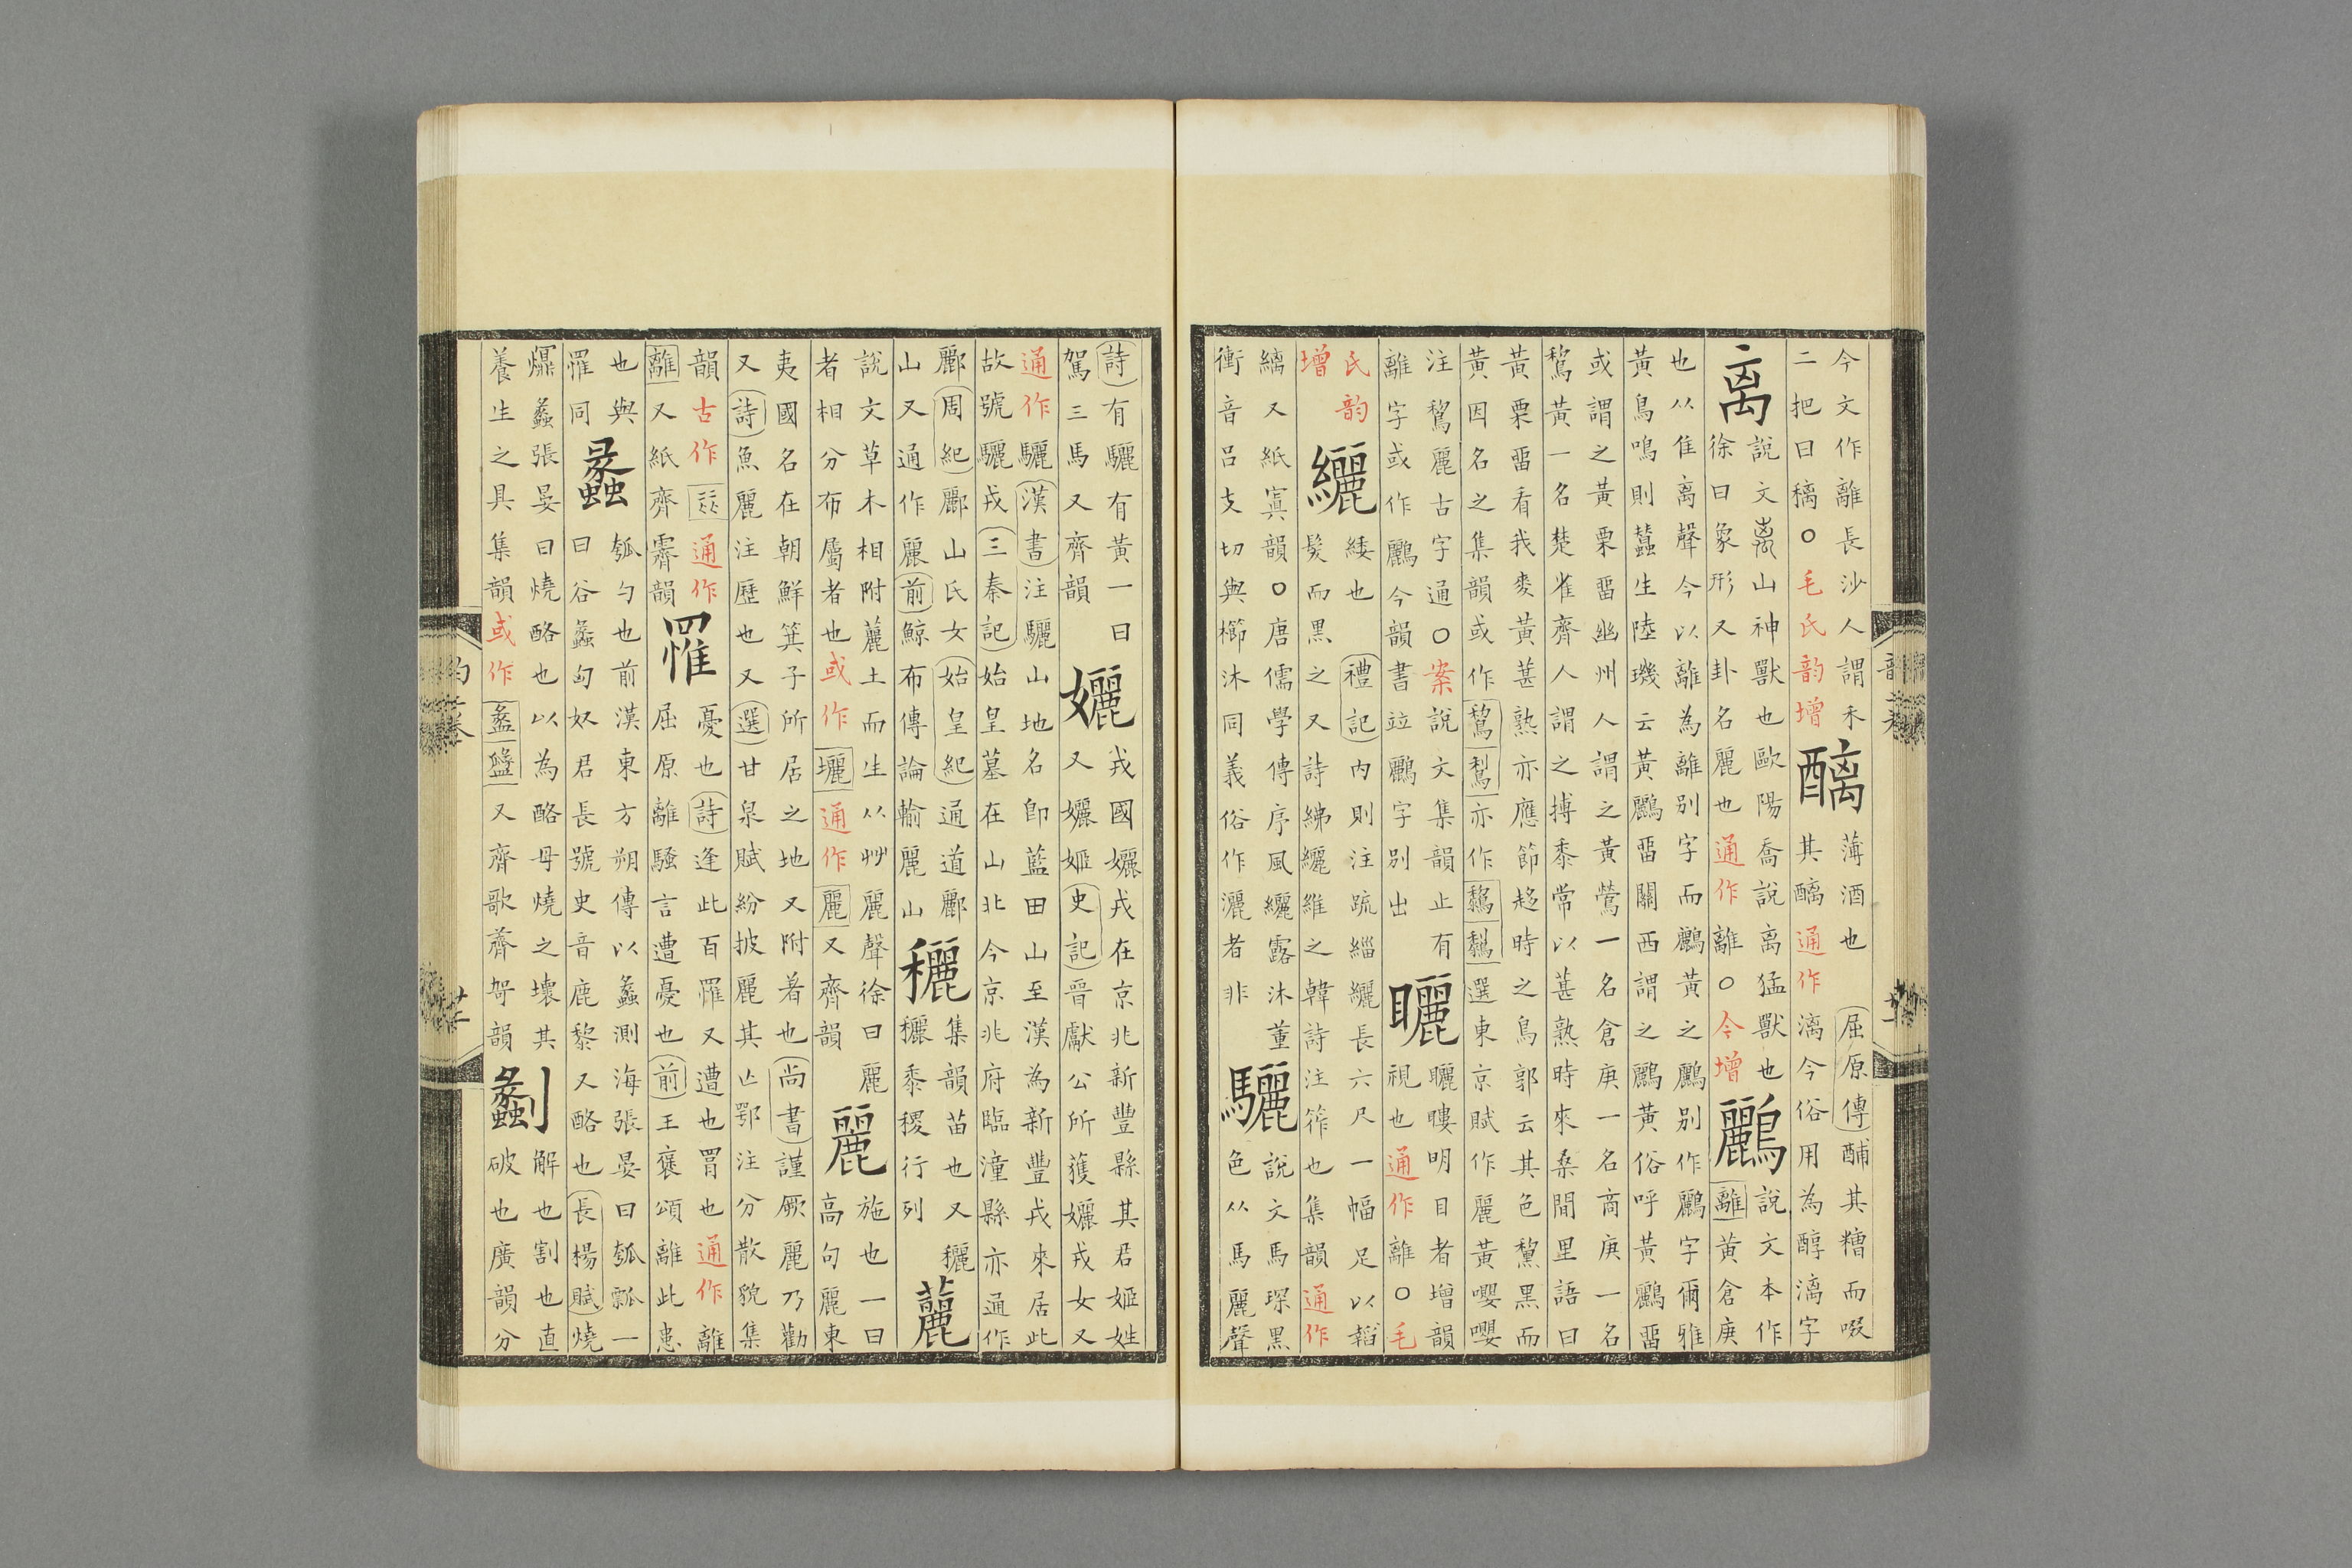 今文作離長沙人謂禾
二把曰䅻○毛氏韵增
醨
薄酒也屈原傳酺其糟而啜
其醨通作漓今俗用為醇漓字
离
說文离山神獸也歐陽喬說离猛獸也
徐曰象形又卦名麗也通作離○今增
鸝
說文本作
離黃倉庚
也从隹离聲今以離為離別字而鸝黃之鸝別作鸝字爾雅
黃鳥鳴則蠶生陸璣云黃鸝畱關西謂之鸝黃俗呼黃鸝畱
或謂之黃栗畱幽州人謂之黃鶯一名倉庚一名商庚一名
鵹黃一名楚雀齊人謂之搏黍常以葚熟時來桑間里語曰
黃栗畱看我麥黃葚熟亦應節趍時之鳥郭云其色黧黑而
黃因名之集韻或作鵹亦作選東京賦作麗黃嚶嚶
注鵹麗古字通○案說文集韻止有
離字或作鸝今韻書竝鸝字別出
矖
矖瞜明目者增韻
視也通作離○毛
氏韵
增
纚
緌也禮記內則注疏緇纚長六尺一幅足以韜
髮而黑之又詩紼纚維之韓詩注筰也集韻通作
縭又紙寘韻○唐儒學傳序風纚露沐董
衝音呂支切與櫛沐同義俗作灑者非
驪
說文馬深黑
色从馬麗聲
詩有驪有黃一曰
駕三馬又齊韻
孋
戎國孋戎在京兆新豐縣其君姬姓
又孋姬史記晉獻公所獲孋戎女又
通作驪漢書注驪山地名即藍田山至漢為新豐戎來居此
故號驪戎三秦記始皇墓在山北今京兆府臨潼縣亦通作
酈周紀酈山氏女始皇紀通道酈
山又通作麗前鯨布傳論輸麗山
穲
集韻苗也又穲
穲黍稷行列
䕻
說文草木相附䕻土而生从艸麗聲徐曰麗
者相分布屬者也或作㘑通作麗又齊韻
麗
施也一曰
高句麗東
夷國名在朝鮮箕子所居之地又附著也尚書謹厥麗乃勸
又詩魚麗注歷也又選甘泉賦紛披麗其亡鄂注分散貌集
韻古作通作
離又紙齊霽韻
罹
憂也詩逢此百罹又遭也罥也通作離
屈原離騷言遭憂也前王襃頌離此患
也與
罹同
蠡
瓠勺也前漢東方朔傳以蠡測海張晏曰瓠瓢一
曰谷蠡匈奴君長號史音鹿黎又酪也長楊賦燒
蠡張晏曰燒酪也以為酪母燒之壞其
養生之具集韻或作又齊歌薺哿韻
劙
解也割也直
破也廣韻分